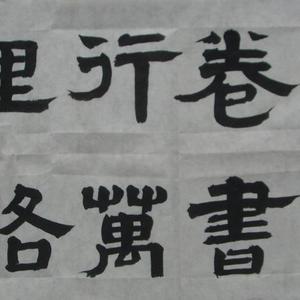 卷書
行萬
里路